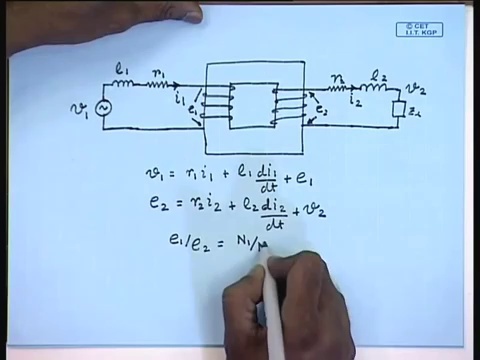 © CET
I.I.T. KGP
l₁ r₁ i₁ e₁ v₁
r₂ l₂ i₂ e₂ v₂ Z_L
v₁ = r₁i₁ + l₁ di₁/dt + e₁
e₂ = r₂i₂ + l₂ di₂/dt + v₂
e₁/e₂ = N₁/